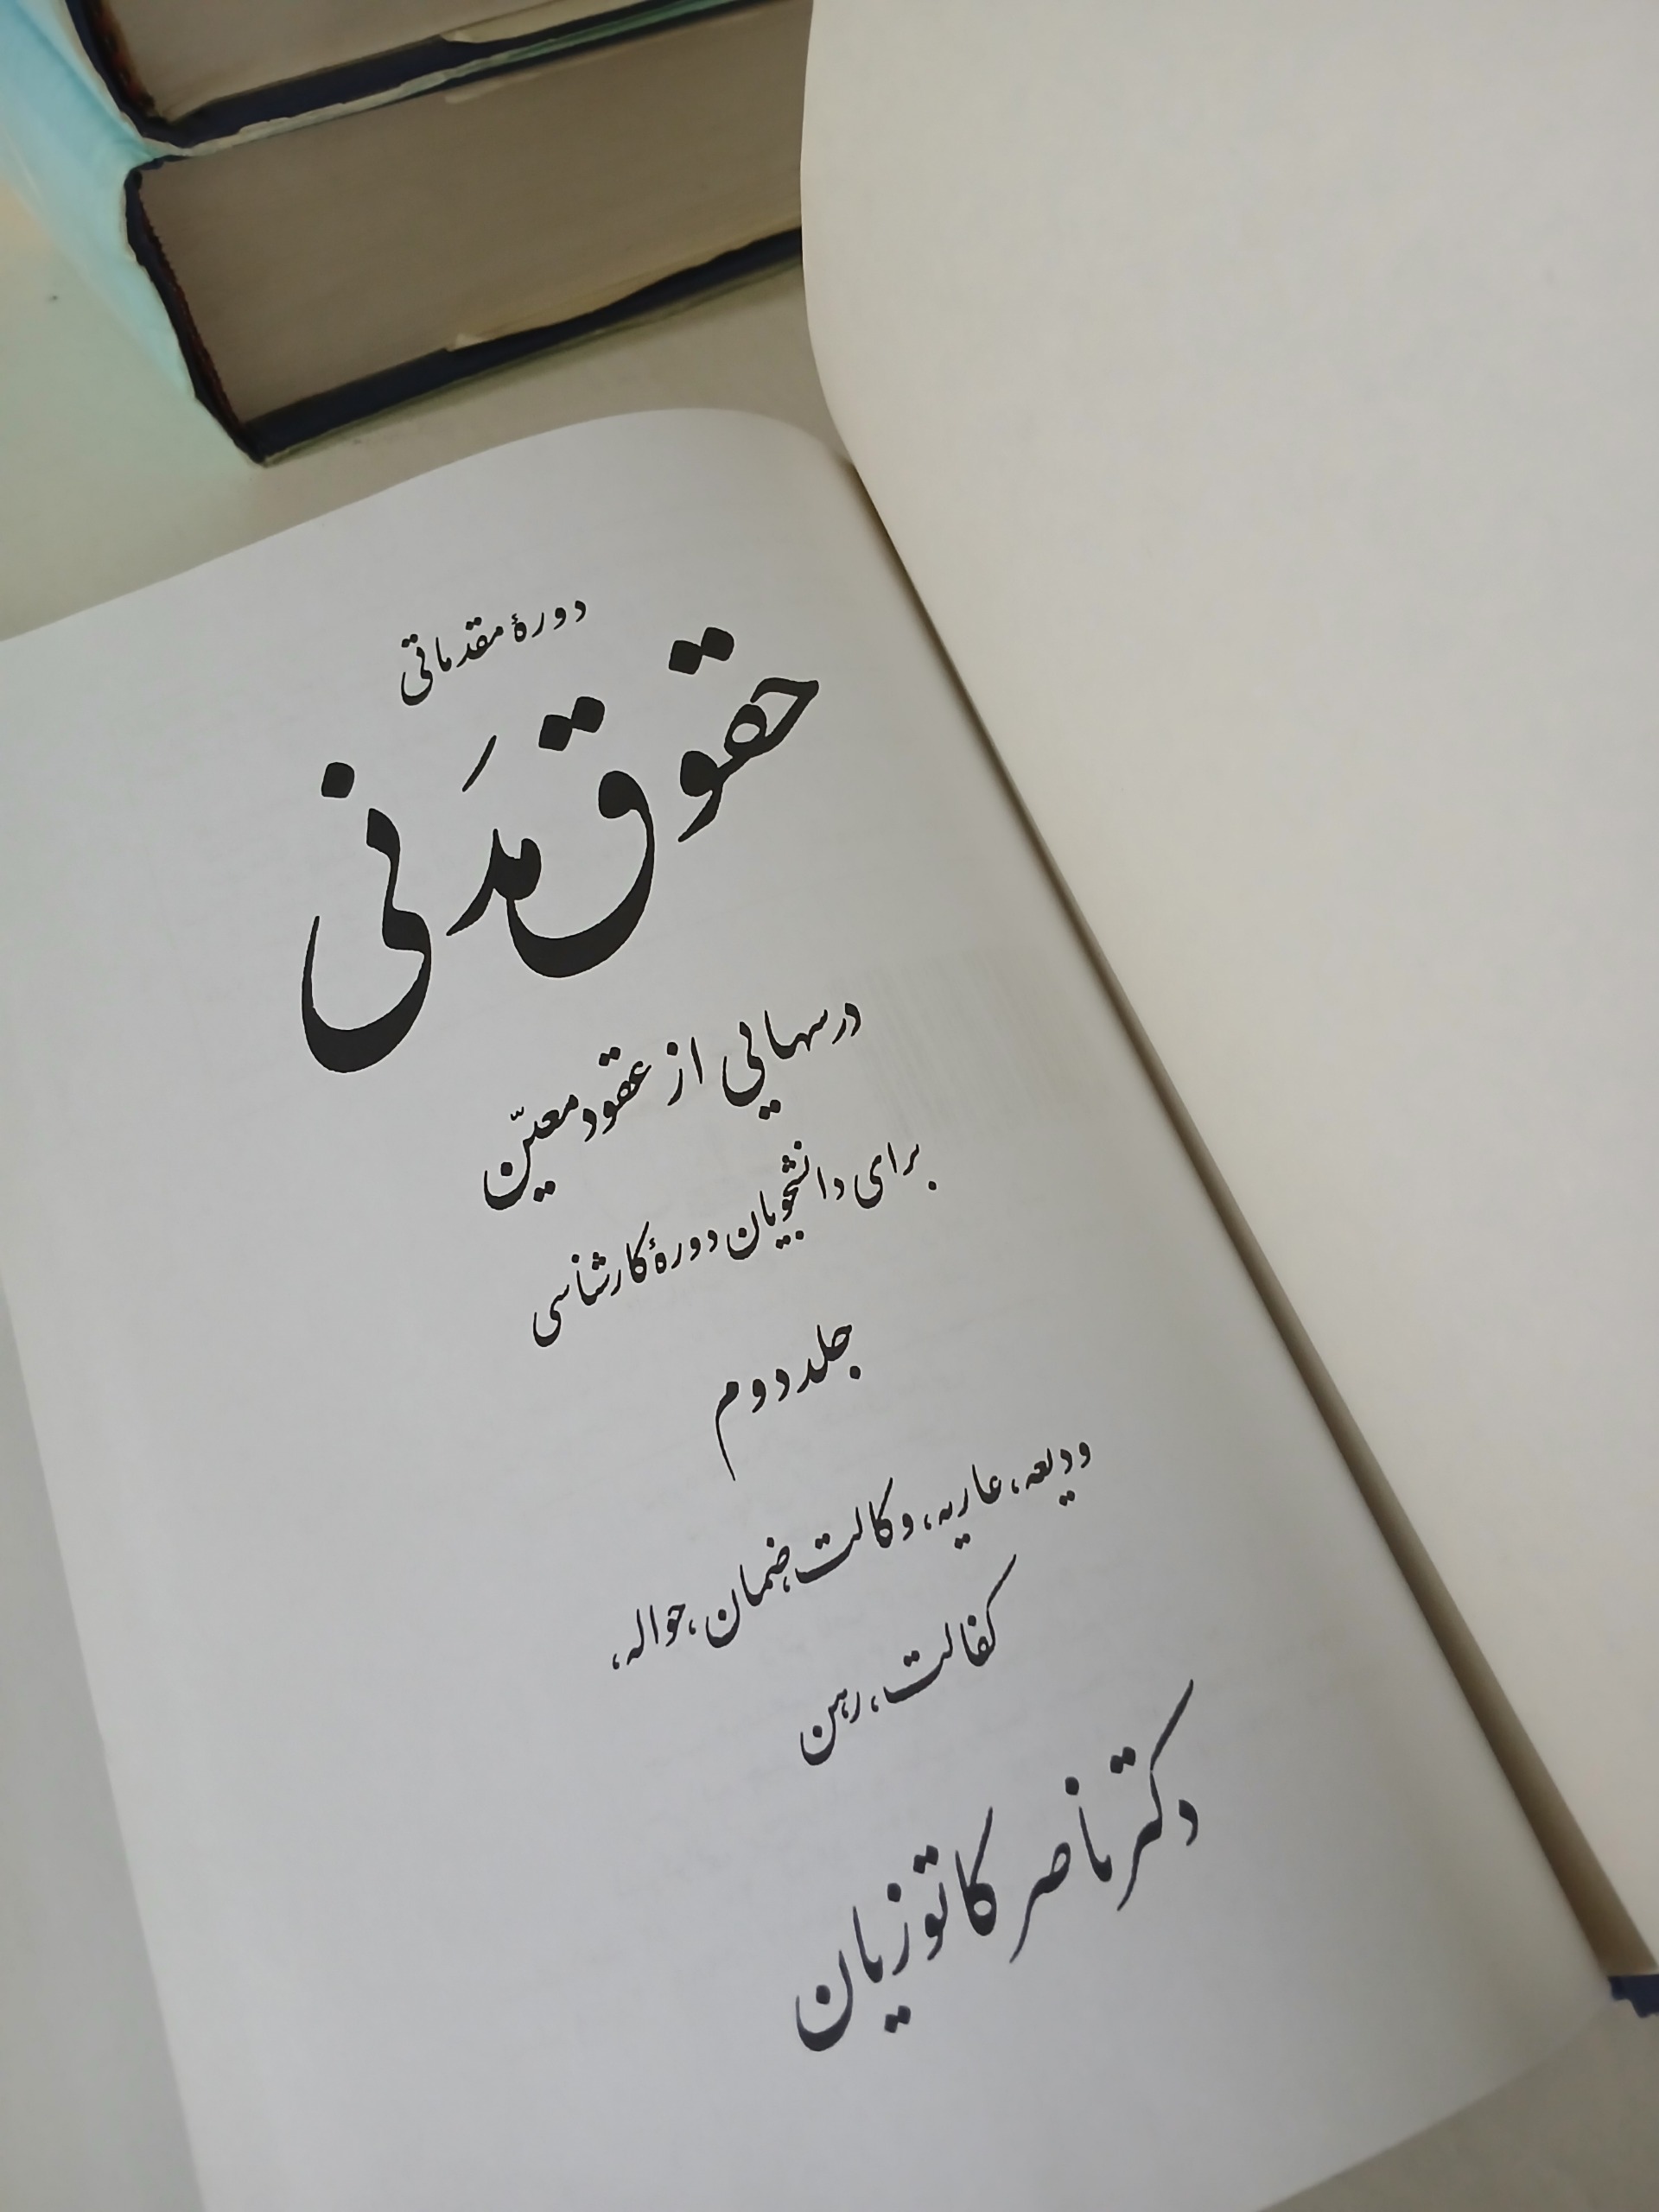 دورهٔ مقدماتی
حقوق مَدنی
درسهایی از عقود معیّن
برای دانشجویان دورهٔ کارشناسی
جلد دوم
ودیعه، عاریه، وکالت، ضمان، حواله،
کفالت، رهن
دکتر ناصر کاتوزیان